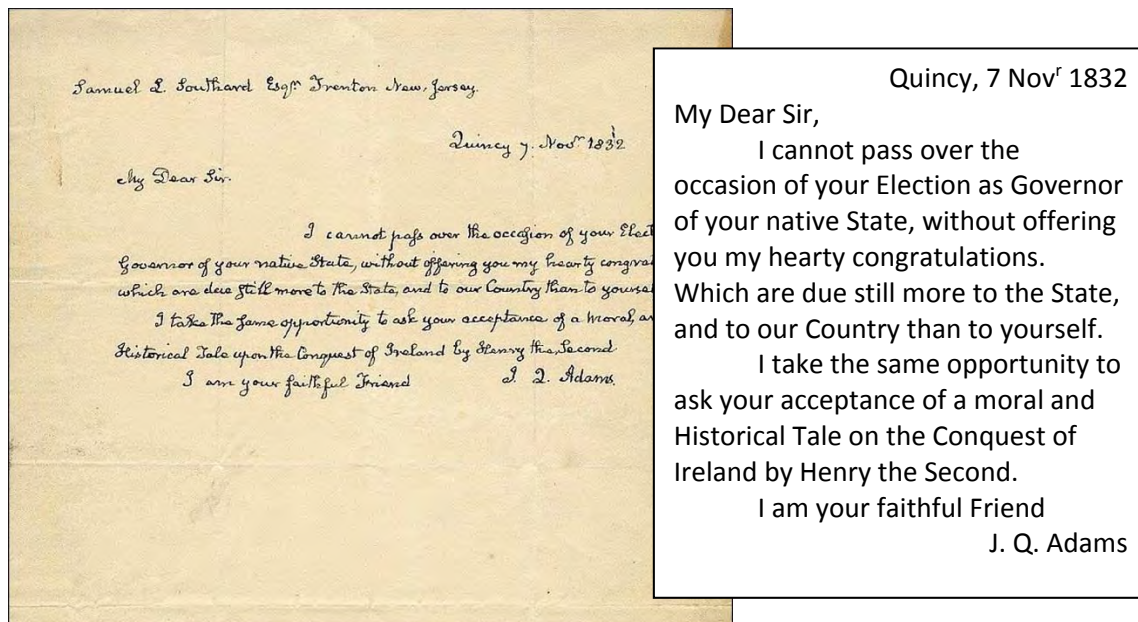 Samuel L. Southard Esqr. Trenton New Jersey.
Quincy 7. Novr. 1832
My Dear Sir.
I cannot pass over the occasion of your Elect
Governor of your native State, without offering you my hearty congrat
which are due still more to the State, and to our Country than to yoursel
I take the same opportunity to ask your acceptance of a moral, an
Historical Tale upon the Conquest of Ireland by Henry the Second
I am your faithful Friend J. Q. Adams.
Quincy, 7 Novʳ 1832
My Dear Sir,
I cannot pass over the
occasion of your Election as Governor
of your native State, without offering
you my hearty congratulations.
Which are due still more to the State,
and to our Country than to yourself.
I take the same opportunity to
ask your acceptance of a moral and
Historical Tale on the Conquest of
Ireland by Henry the Second.
I am your faithful Friend
J. Q. Adams